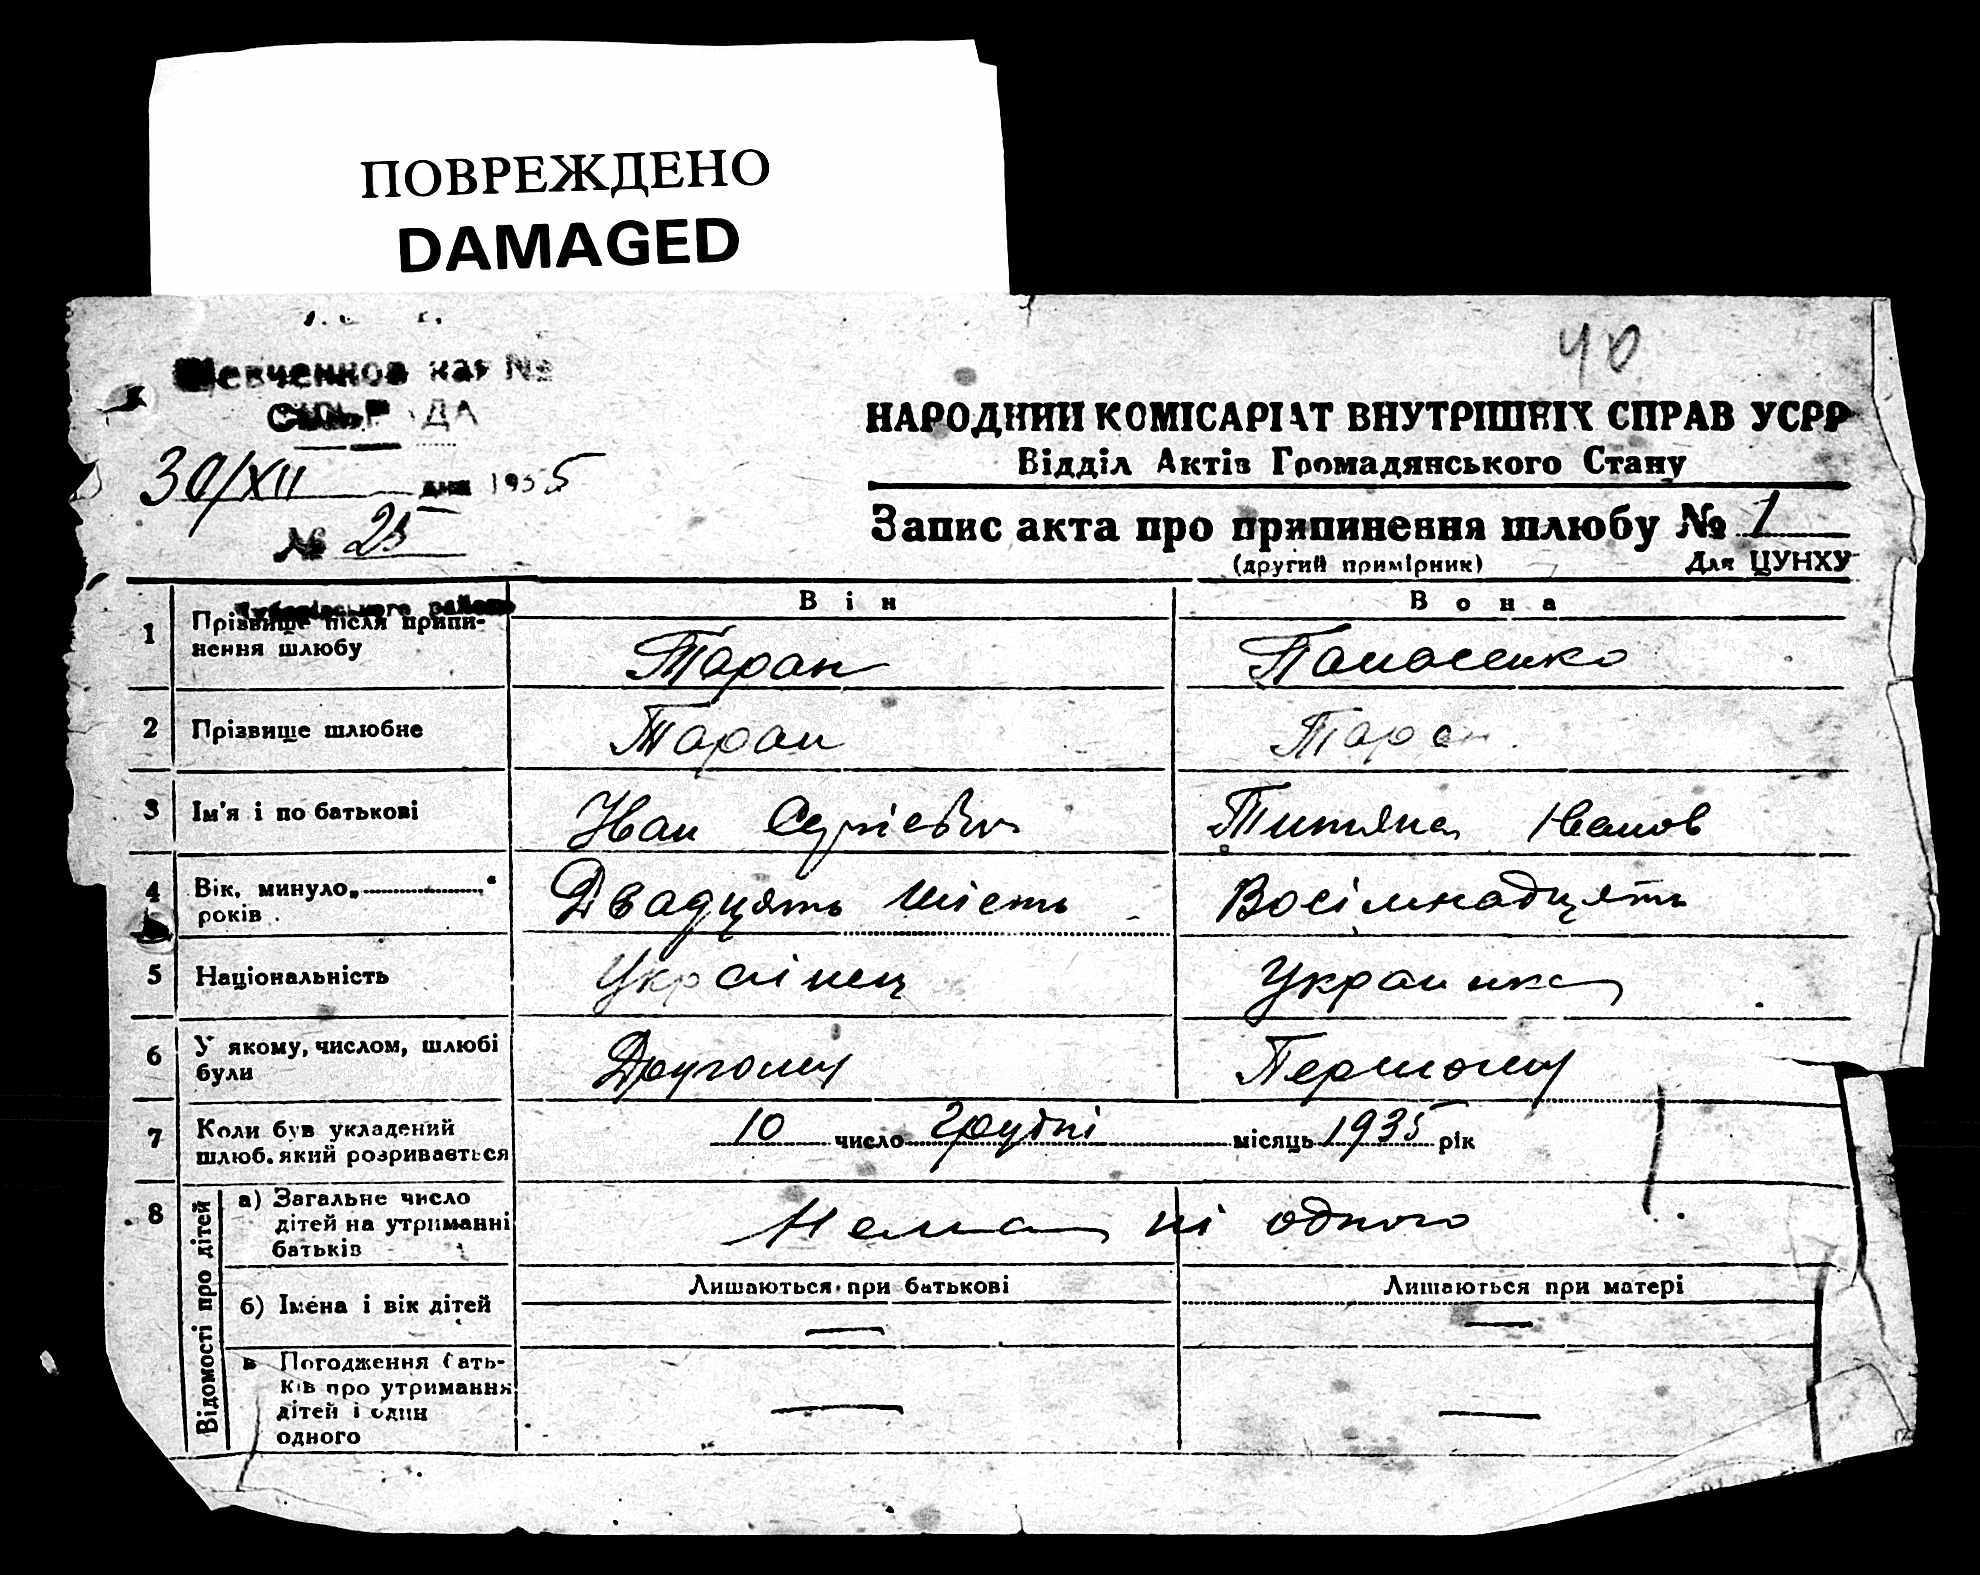 ПОВРЕЖДЕНО
DAMAGED
40
Шевченков ка №
СІЛЬРАДА
30/XII дня 1935
№ 23
НАРОДНИЙ КОМІСАРІАТ ВНУТРІШНІХ СПРАВ УСРР
Відділ Актів Громадянського Стану
Запис акта про припинення шлюбу № 1
(другий примірник) Для ЦУНХУ
району
Він Вона
1 Прізвище після припи-
нення шлюбу Таран Панасенко
2 Прізвище шлюбне Таран Таран
3 Ім'я і по батькові Іван Сергієвич Титяна Іванов
4 Вік, минуло „ “
років Двадцять шість Восімнадцять
5 Національність Українець Украинка
6 У якому, числом, шлюбі
були Другому Першому
7 Коли був укладений
шлюб, який розривається 10 число Грудні місяць 1935 рік
8 Відомості про дітей
а) Загальне число
дітей на утриманні
батьків Нема ні одного
Лишаються при батькові Лишаються при матері
б) Імена і вік дітей — —
в Погодження бать-
ків про утримання
дітей і один
одного — —